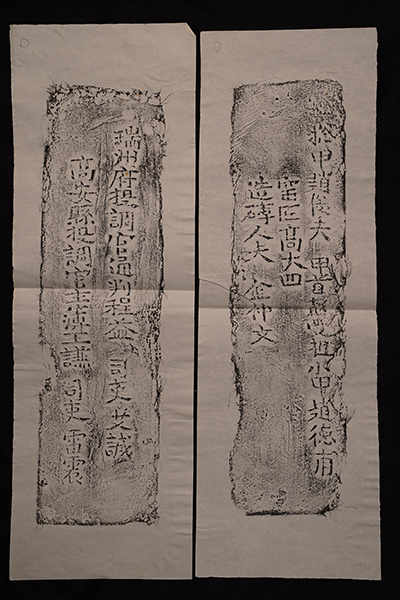 瑞州府提調官通判程益 司吏艾誠
高安縣提調官主簿王謙 司吏雷震
捴甲趙俊夫 甲首 小甲趙德甫
窑匠高大四
造磚人夫金仲文